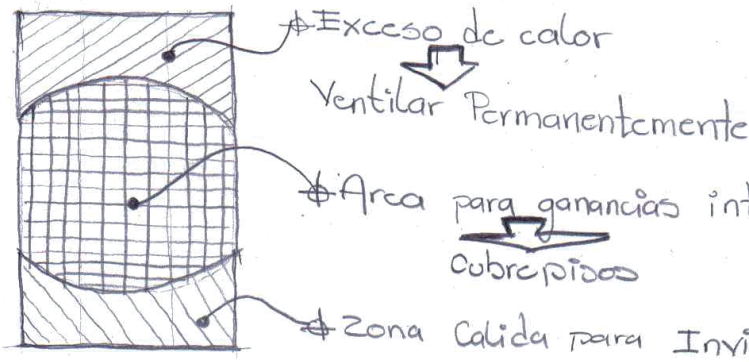 Exceso de calor
Ventilar Permanentemente
Area para ganancias int
Cubrepisos
Zona Calida para Invi